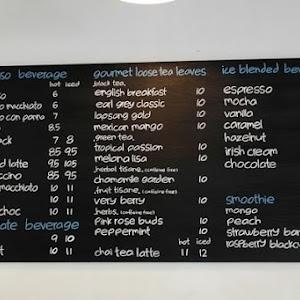 so beverage
hot iced
so 6
o macchiato 6
o con panna 7
o 8.5
ack 7 8
85 95
d latte 95 105
ccino 85 95
macchiato 10 11
10 11
choc 10 11
ate beverage
9 10
t 10 11
gourmet loose tea leaves
black tea.
english breakfast 10
earl grey classic 10
lapsang gold 10
mexican mango 10
green tea.
tropical passion 10
melana lisa 10
herbal tisane. (caffeine free)
chamomile garden 10
fruit tisane. (caffeine free)
very berry 10
herbs. (caffeine free)
pink rose buds 10
peppermint 10
hot iced
chai tea latte 11 12
ice blended bev
espresso
mocha
vanilla
caramel
hazelnut
irish cream
chocolate
smoothie
mango
peach
strawberry ban
raspberry blackcu